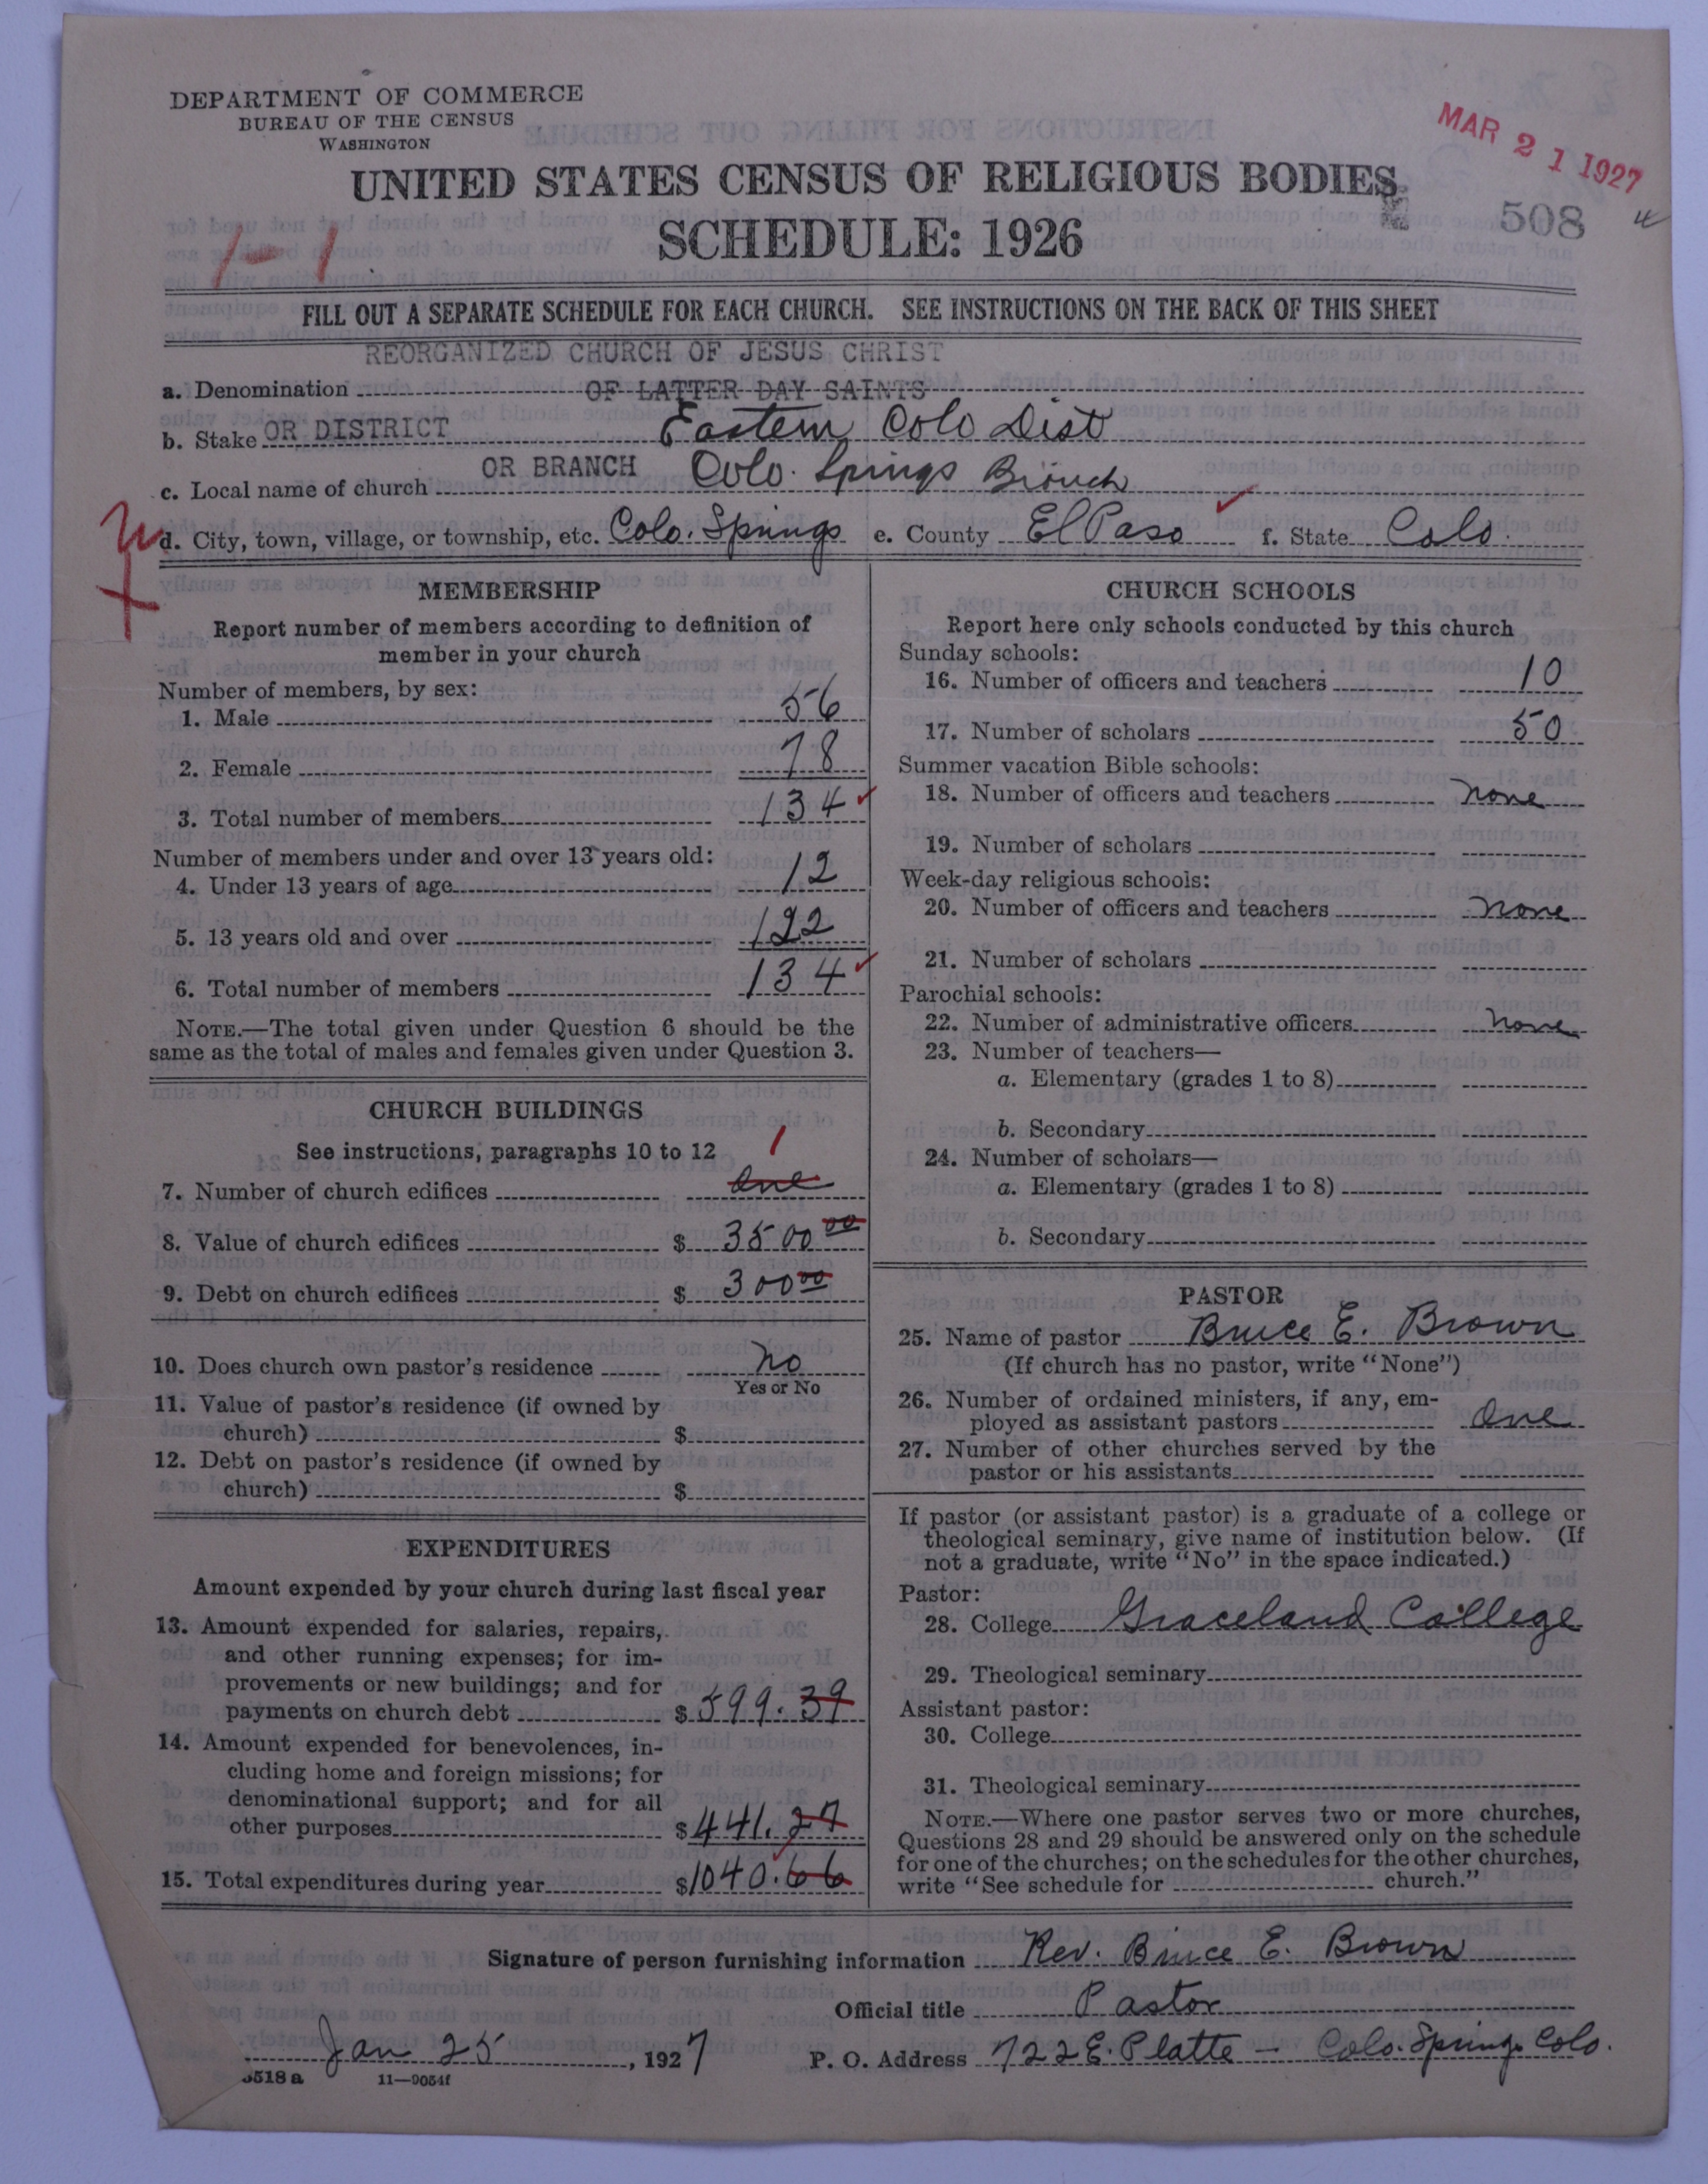 DEPARTMENT OF COMMERCE
BUREAU OF THE CENSUS
WASHINGTON
MAR 21 1927
UNITED STATES CENSUS OF RELIGIOUS BODIES
SCHEDULE: 1926
508
1-1
FILL OUT A SEPARATE SCHEDULE FOR EACH CHURCH. SEE INSTRUCTIONS ON THE BACK OF THIS SHEET
REORGANIZED CHURCH OF JESUS CHRIST
a. Denomination OF LATTER DAY SAINTS
b. Stake OR DISTRICT Eastern Colo Dist
OR BRANCH
c. Local name of church Colo. Springs Branch
d. City, town, village, or township, etc. Colo. Springs e. County El Paso f. State Colo.
MEMBERSHIP
Report number of members according to definition of
member in your church
Number of members, by sex:
1. Male 56
2. Female 78
3. Total number of members 134
Number of members under and over 13 years old:
4. Under 13 years of age 12
5. 13 years old and over 122
6. Total number of members 134
NOTE.—The total given under Question 6 should be the
same as the total of males and females given under Question 3.
CHURCH BUILDINGS
See instructions, paragraphs 10 to 12
1
7. Number of church edifices One
8. Value of church edifices $ 3500 00
9. Debt on church edifices $ 300 00
10. Does church own pastor's residence No
Yes or No
11. Value of pastor's residence (if owned by
church) $
12. Debt on pastor's residence (if owned by
church) $
EXPENDITURES
Amount expended by your church during last fiscal year
13. Amount expended for salaries, repairs,
and other running expenses; for im-
provements or new buildings; and for
payments on church debt $ 599.39
14. Amount expended for benevolences, in-
cluding home and foreign missions; for
denominational support; and for all
other purposes $ 441.27
15. Total expenditures during year $ 1040.66
CHURCH SCHOOLS
Report here only schools conducted by this church
Sunday schools:
16. Number of officers and teachers 10
17. Number of scholars 50
Summer vacation Bible schools:
18. Number of officers and teachers none
19. Number of scholars
Week-day religious schools:
20. Number of officers and teachers none
21. Number of scholars
Parochial schools:
22. Number of administrative officers none
23. Number of teachers—
a. Elementary (grades 1 to 8)
b. Secondary
24. Number of scholars—
a. Elementary (grades 1 to 8)
b. Secondary
PASTOR
25. Name of pastor Bruce E. Brown
(If church has no pastor, write "None")
26. Number of ordained ministers, if any, em-
ployed as assistant pastors One
27. Number of other churches served by the
pastor or his assistants
If pastor (or assistant pastor) is a graduate of a college or
theological seminary, give name of institution below. (If
not a graduate, write "No" in the space indicated.)
Pastor:
28. College Graceland College
29. Theological seminary
Assistant pastor:
30. College
31. Theological seminary
NOTE.—Where one pastor serves two or more churches,
Questions 28 and 29 should be answered only on the schedule
for one of the churches; on the schedules for the other churches,
write "See schedule for church."
Signature of person furnishing information Rev. Bruce E. Brown
Official title Pastor
Jan 25, 1927 P. O. Address 722 E. Platte — Colo. Springs Colo.
5518 a 11—9054f